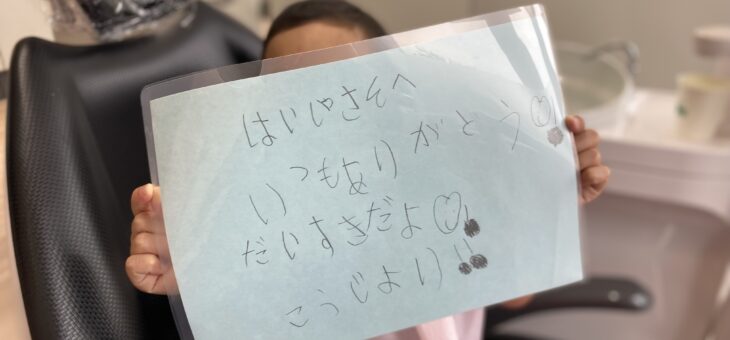 はいしゃさんへ
いつもありがとう!
だいすきだよ!
こうじより!!